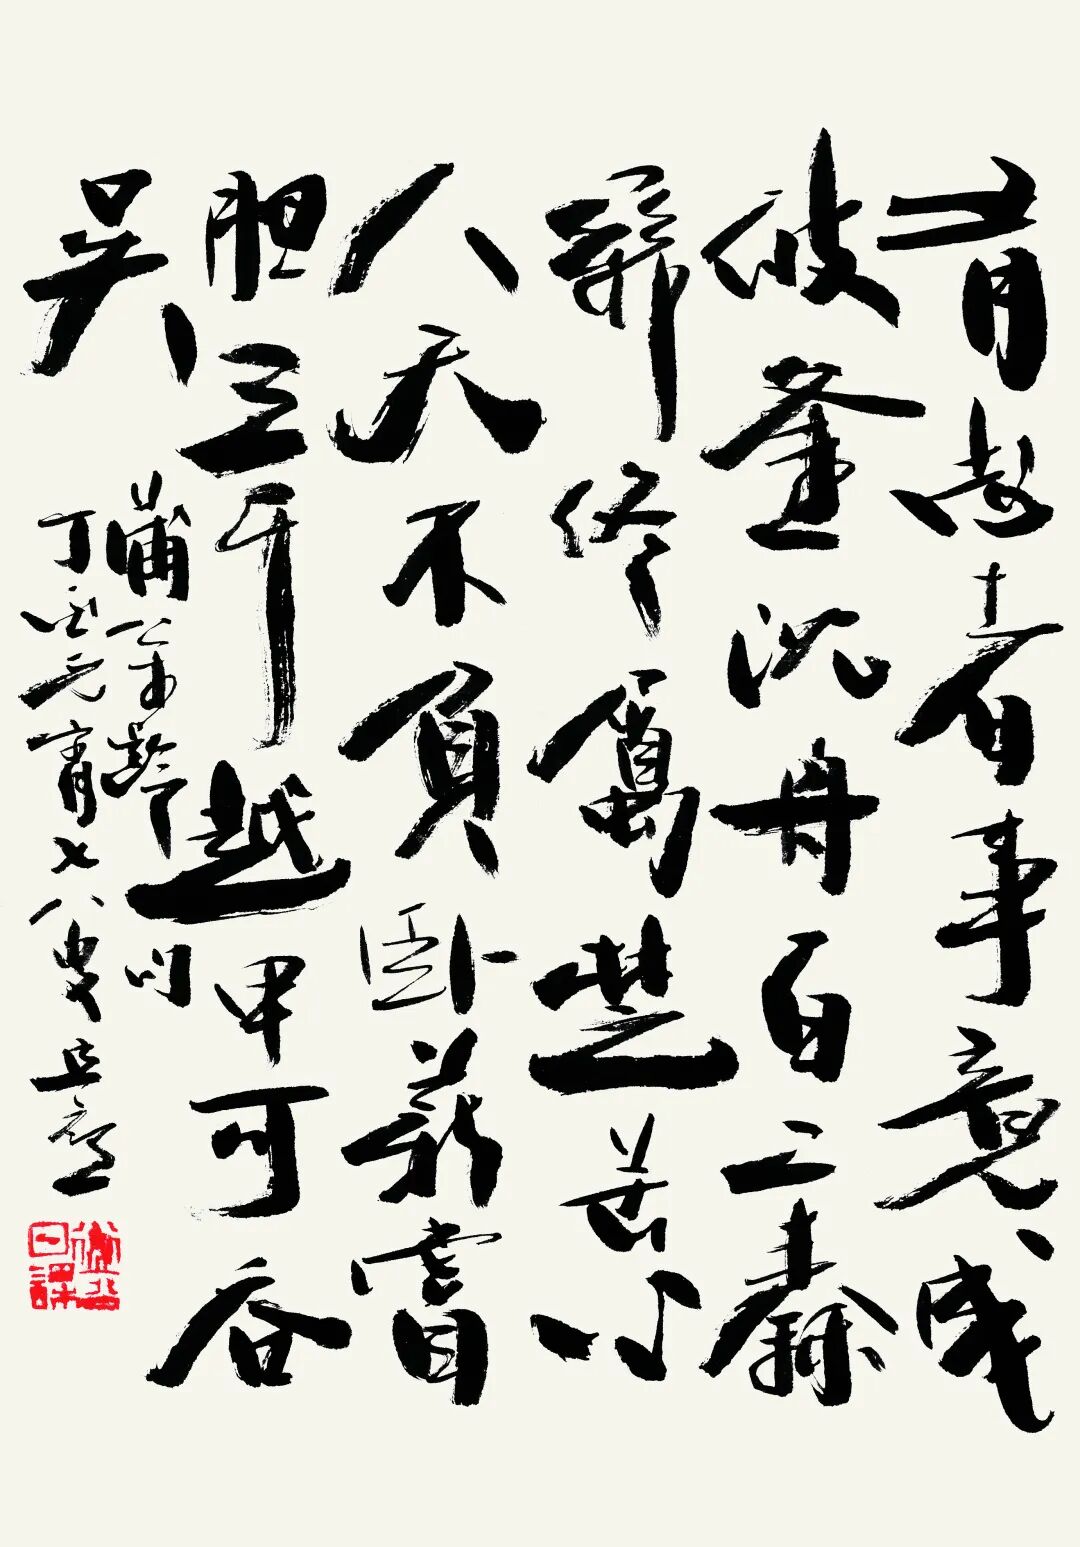 有志者事竟成
破釜沉舟百二秦
關終屬楚苦心
人天不負卧薪嘗
胆三千越甲可吞
吳
蒲松齡句
丁酉元宵七八叟
日課